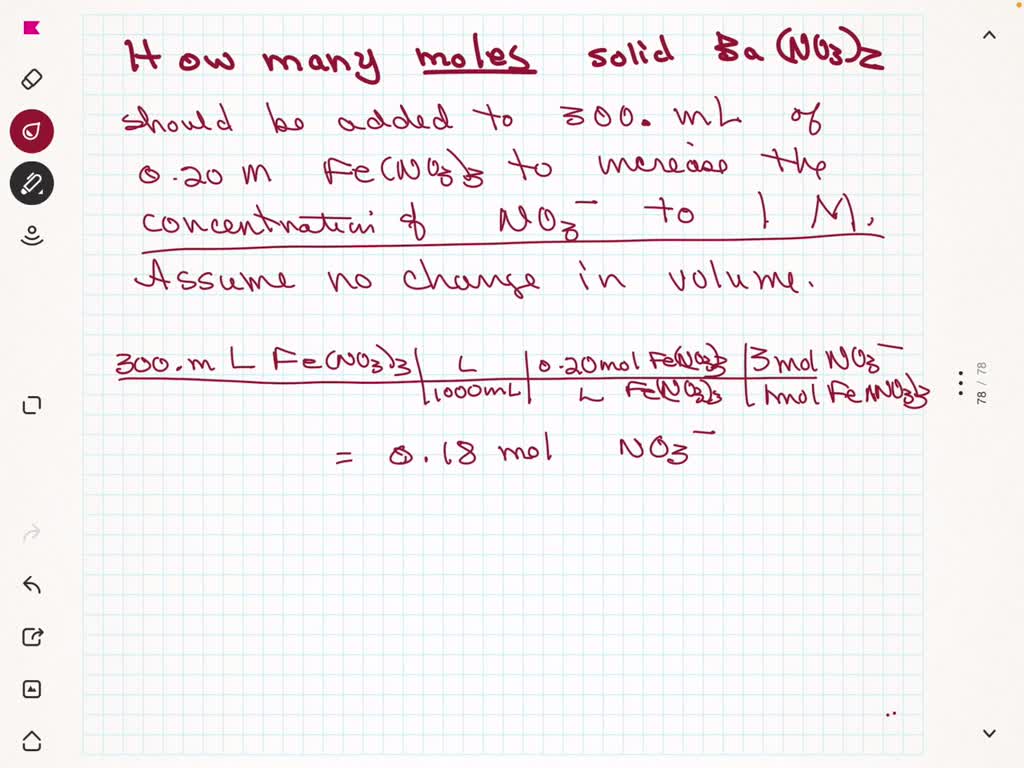 How many moles solid Ba(NO3)2
should be added to 300. mL of
0.20 M Fe(NO3)3 to increase the
concentration of NO3- to 1 M.
Assume no change in volume.
300. mL Fe(NO3)3 | L | 0.20 mol Fe(NO3)3 | 3 mol NO3-
1000 mL | L Fe(NO3)3 | 1 mol Fe(NO3)3
= 0.18 mol NO3-
78 / 78